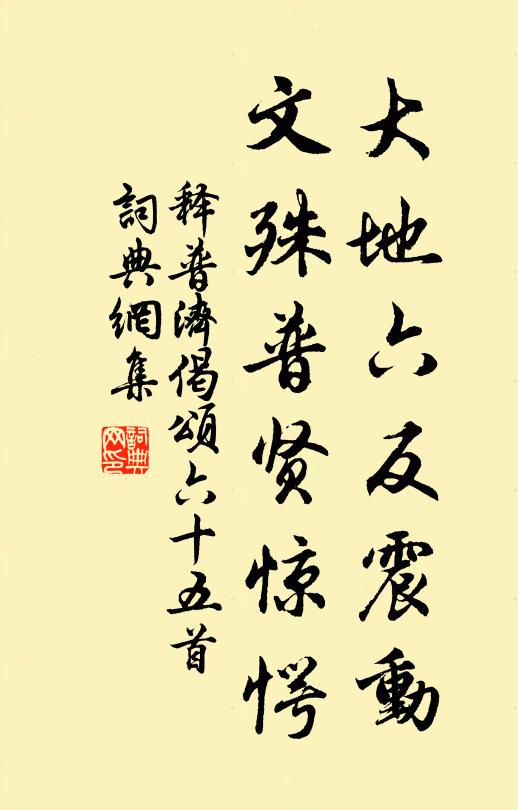 大地六反震動
文殊普贤惊愕
释普濟偈頌六十五首
詞典網集
詞典
网印